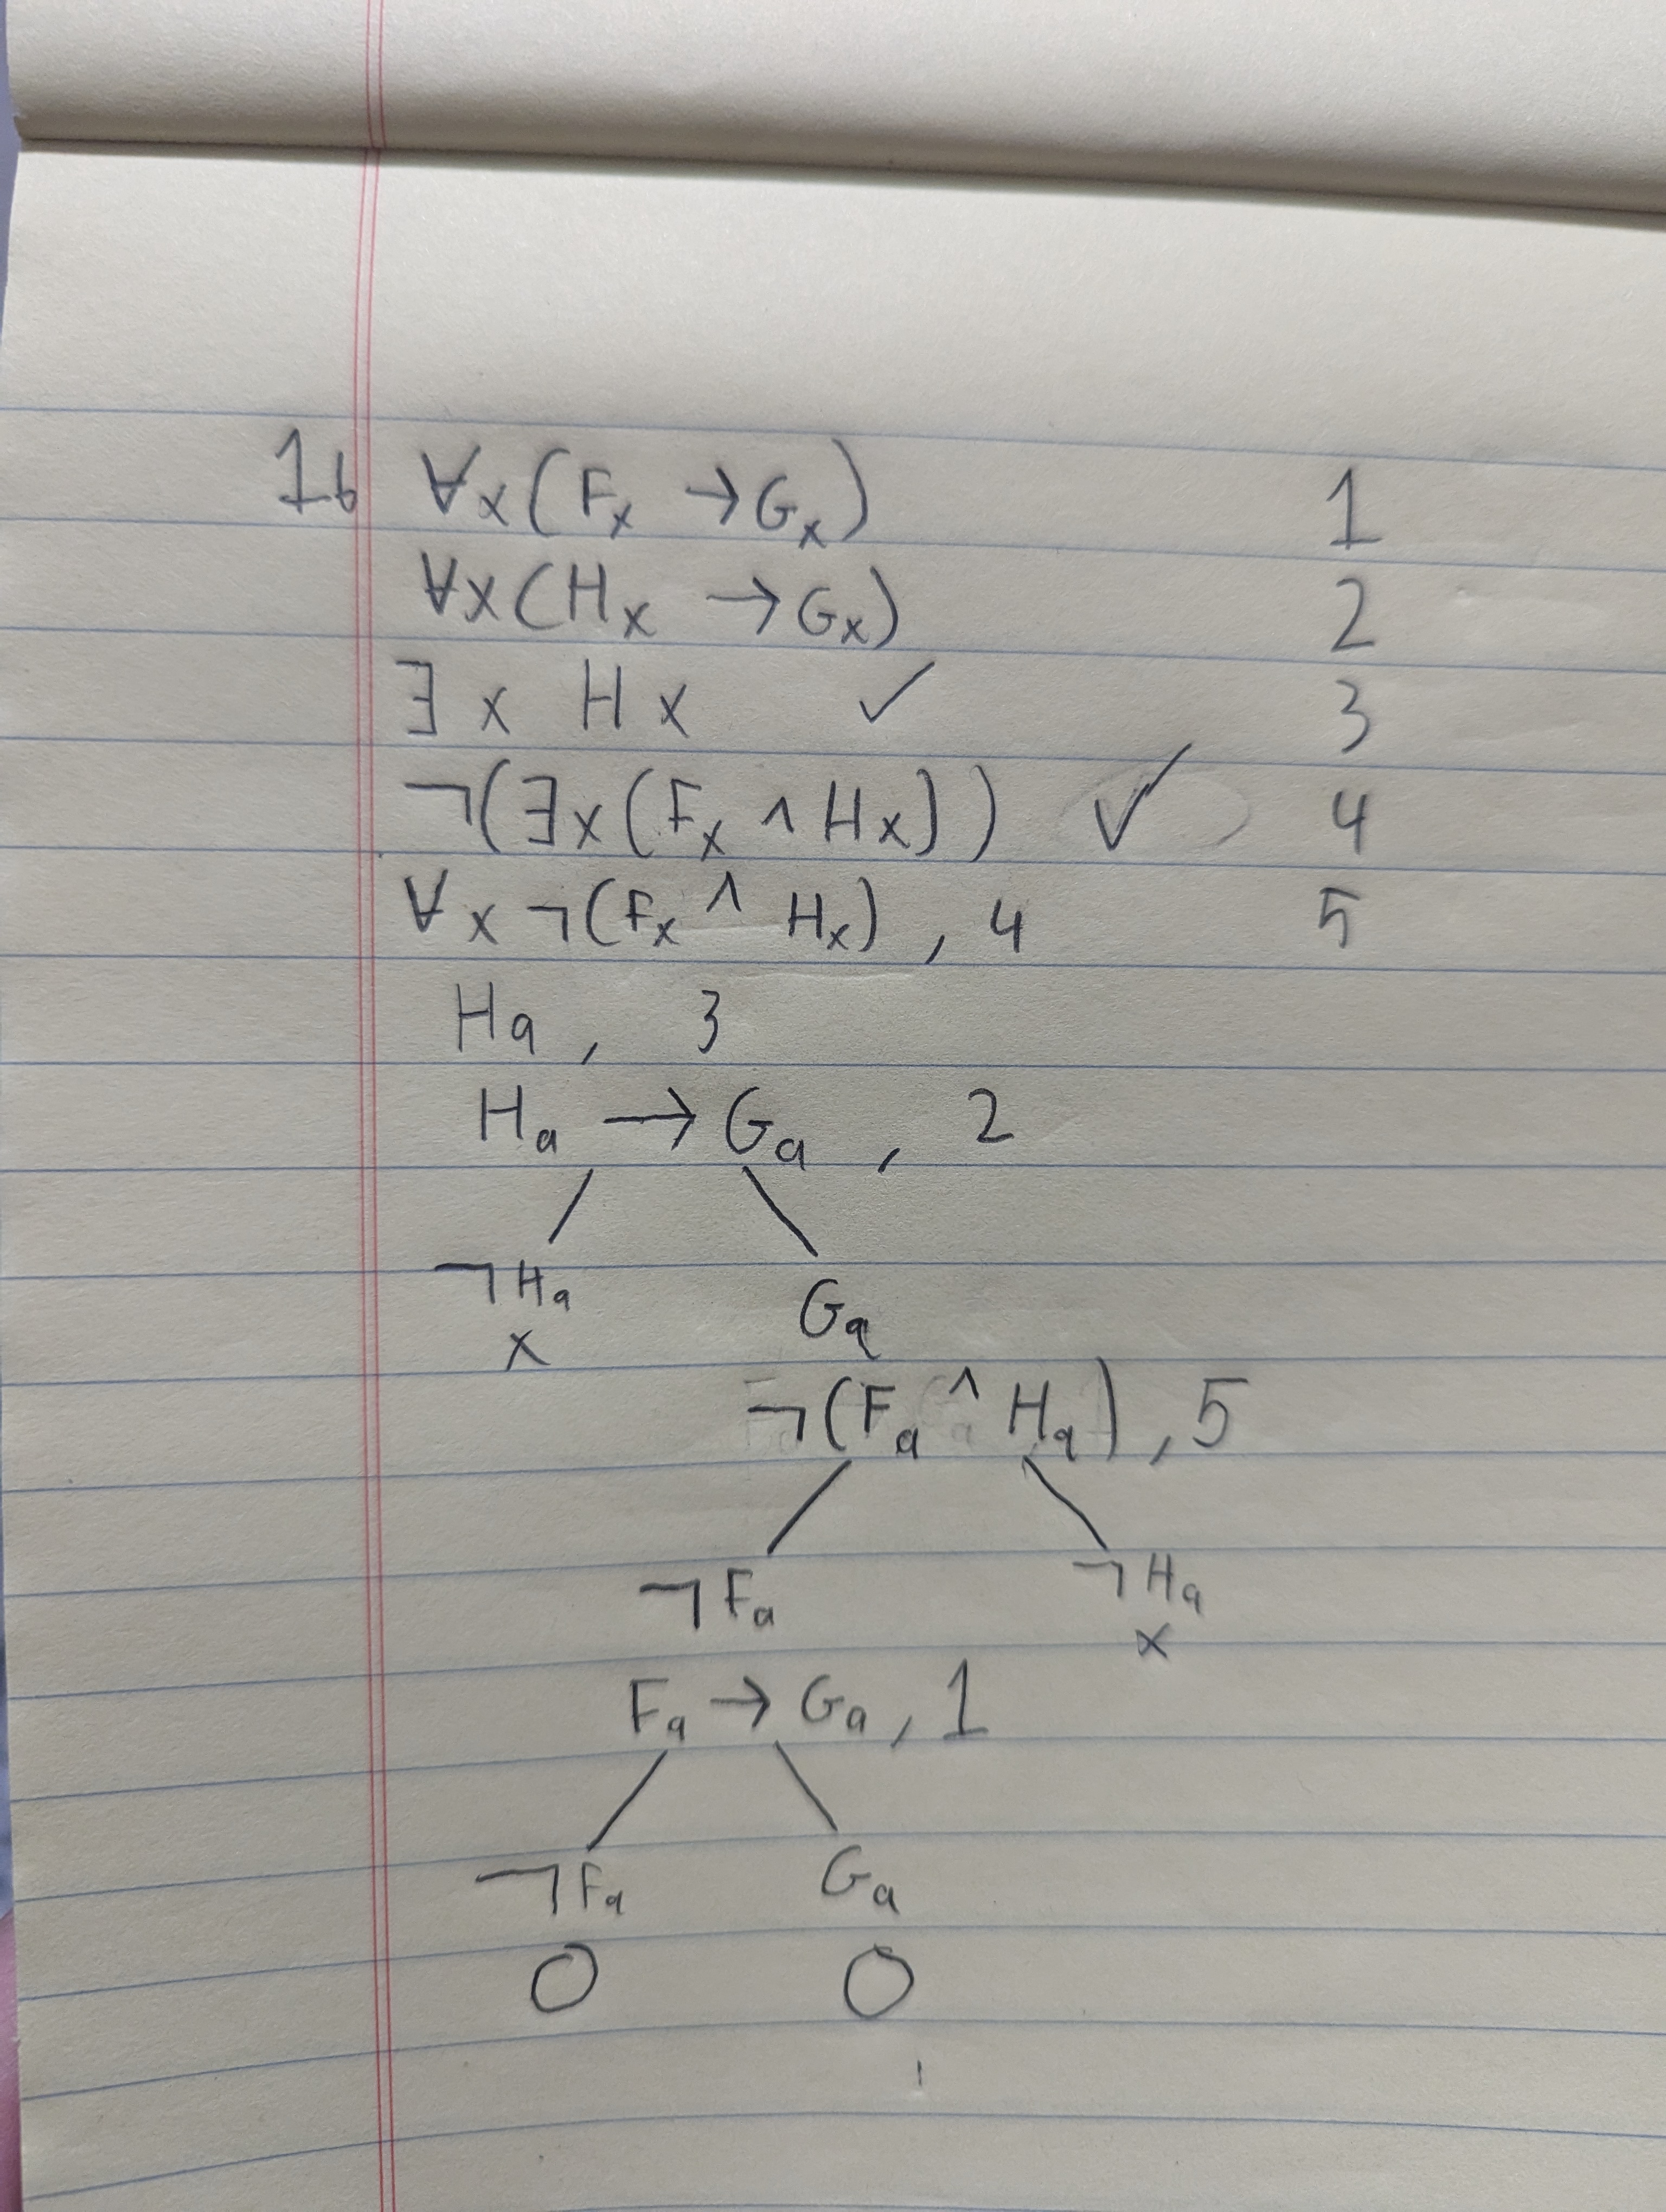 16 ∀x(Fx → Gx) 1
∀x(Hx → Gx) 2
∃x Hx ✓ 3
¬(∃x(Fx ∧ Hx)) ✓ 4
∀x¬(Fx ∧ Hx), 4 5
Ha, 3
Ha → Ga, 2
¬Ha Ga
x
¬(Fa ∧ Ha), 5
¬Fa ¬Ha
x
Fa → Ga, 1
¬Fa Ga
O O